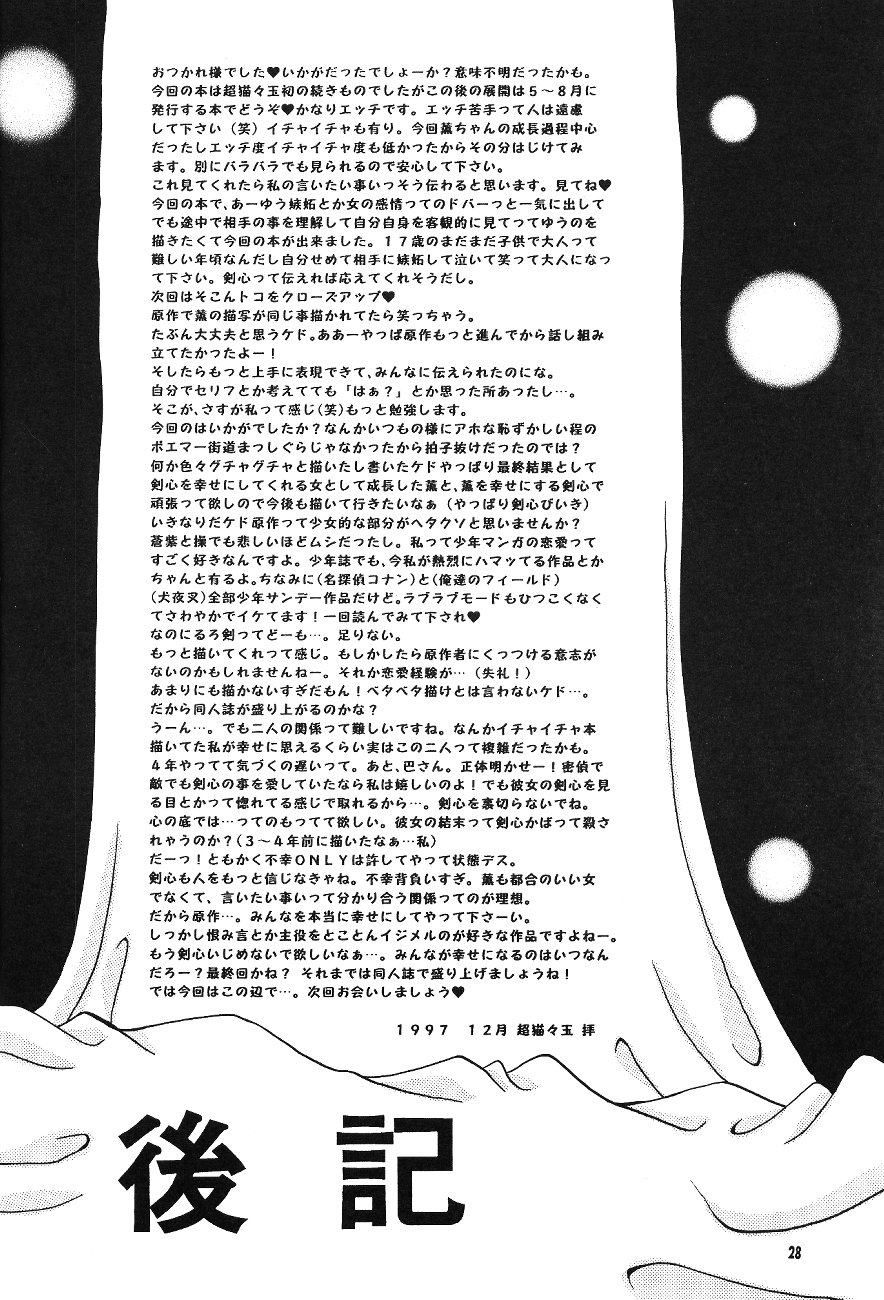 おつかれ様でした♥いかがだったでしょーか？意味不明だったかも。
今回の本は超猫々玉初の続きものでしたがこの後の展開は５～８月に
発行する本でどうぞ♥かなりエッチです。エッチ苦手って人は遠慮
して下さい（笑）イチャイチャも有り。今回薫ちゃんの成長過程中心
だったしエッチ度イチャイチャ度も低かったからその分はじけてみ
ます。別にバラバラでも見られるので安心して下さい。
これ見てくれたら私の言いたい事いっそう伝わると思います。見てね♥
今回の本で、あーゆう嫉妬とか女の感情ってのドバーっと一気に出して
でも途中で相手の事を理解して自分自身を客観的に見てってゆうのを
描きたくて今回の本が出来ました。１７歳のまだまだ子供で大人って
難しい年頃なんだし自分せめて相手に嫉妬して泣いて笑って大人になっ
て下さい。剣心って伝えれば応えてくれそうだし。
次回はそこんトコをクローズアップ♥
原作で薫の描写が同じ事描かれてたら笑っちゃう。
たぶん大丈夫と思うケド。ああーやっぱ原作もっと進んでから話し組み
立てたかったよー！
そしたらもっと上手に表現できて、みんなに伝えられたのにな。
自分でセリフとか考えてても「はぁ？」とか思った所あったし…。
そこが、さすが私って感じ（笑）もっと勉強します。
今回のはいかがでしたか？なんかいつもの様にアホな恥ずかしい程の
ポエマー街道まっしぐらじゃなかったから拍子抜けだったのでは？
何か色々グチャグチャと描いたし書いたケドやっぱり最終結果として
剣心を幸せにしてくれる女として成長した薫と、薫を幸せにする剣心で
頑張って欲しので今後も描いて行きたいなぁ（やっぱり剣心びいき）
いきなりだケド原作って少女的な部分がヘタクソと思いませんか？
蒼紫と操でも悲しいほどムシだったし。私って少年マンガの恋愛って
すごく好きなんですよ。少年誌でも、今私が熱烈にハマッてる作品とか
ちゃんと有るよ。ちなみに（名探偵コナン）と（俺達のフィールド）
（犬夜叉）全部少年サンデー作品だけど。ラブラブモードもひつこくなく
てさわやかでイケてます！一回読んでみて下され♥
なのにるろ剣ってどーも…。足りない。
もっと描いてくれって感じ。もしかしたら原作者にくっつける意志が
ないのかもしれませんねー。それか恋愛経験が…（失礼！）
あまりにも描かないすぎだもん！ベタベタ描けとは言わないケド…。
だから同人誌が盛り上がるのかな？
うーん…。でも二人の関係って難しいですね。なんかイチャイチャ本
描いてた私が幸せに思えるくらい実はこの二人って複雑だったかも。
４年やってて気づくの遅いって。あと、巴さん。正体明かせー！密偵で
敵でも剣心の事を愛していたなら私は嬉しいのよ！でも彼女の剣心を見
る目とかって惚れてる感じで取れるから…。剣心を裏切らないでね。
心の底では…ってのもってて欲しい。彼女の結末って剣心かばって殺さ
れゃうのか？（３～４年前に描いたなぁ…私）
だーっ！ともかく不幸ＯＮＬＹは許してやって状態デス。
剣心も人をもっと信じなきゃね。不幸背負いすぎ。薫も都合のいい女
でなくて、言いたい事いって分かり合う関係ってのが理想。
だから原作…。みんなを本当に幸せにしてやって下さーい。
しっかし恨み言とか主役をとことんイジメルのが好きな作品ですよねー。
もう剣心いじめないで欲しいなぁ…。みんなが幸せになるのはいつなん
だろー？最終回かね？ それまでは同人誌で盛り上げましょうね！
では今回はこの辺で…。次回お会いしましょう♥
１９９７ １２月 超猫々玉 拝
後記
28